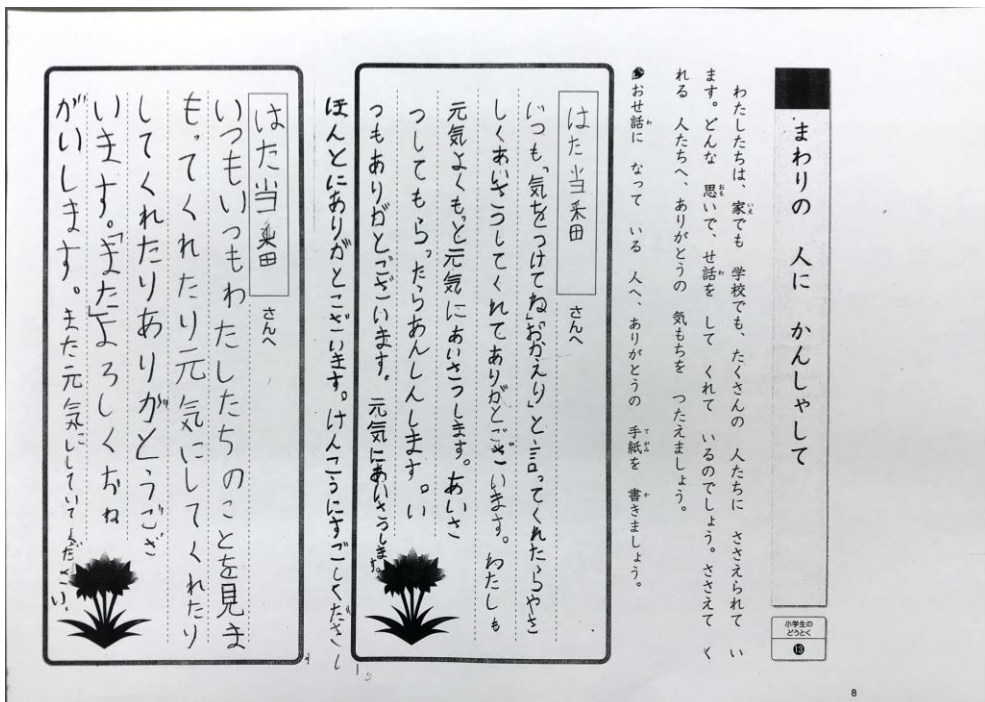 まわりの 人に かんしゃして
小学生の
どうとく
⓭
わたしたちは、家でも 学校でも、たくさんの 人たちに ささえられて い
ます。どんな 思いで、せ話を して くれて いるのでしょう。ささえて く
れる 人たちへ、ありがとうの 気もちを つたえましょう。
おせ話に なって いる 人へ、ありがとうの 手紙を 書きましょう。
はた当番 さんへ
いつも「気をつけてね」「おかえり」と言ってくれたらやさ
しくあいさつしてくれてありがとございます。わたしも
元気よくもっと元気にあいさつします。あいさ
つしてもらったらあんしんします。い
つもありがとございます。元気にあいさつします。
ほんとにありがとございます。けんこうにすごしてくださ
はた当番 さんへ
いつもいつもわたしたちのことを見ま
もってくれたり元気にしてくれたり
してくれたりありがとうござ
います。「また」よろしくおね
がいします。また元気にしていてください。
8